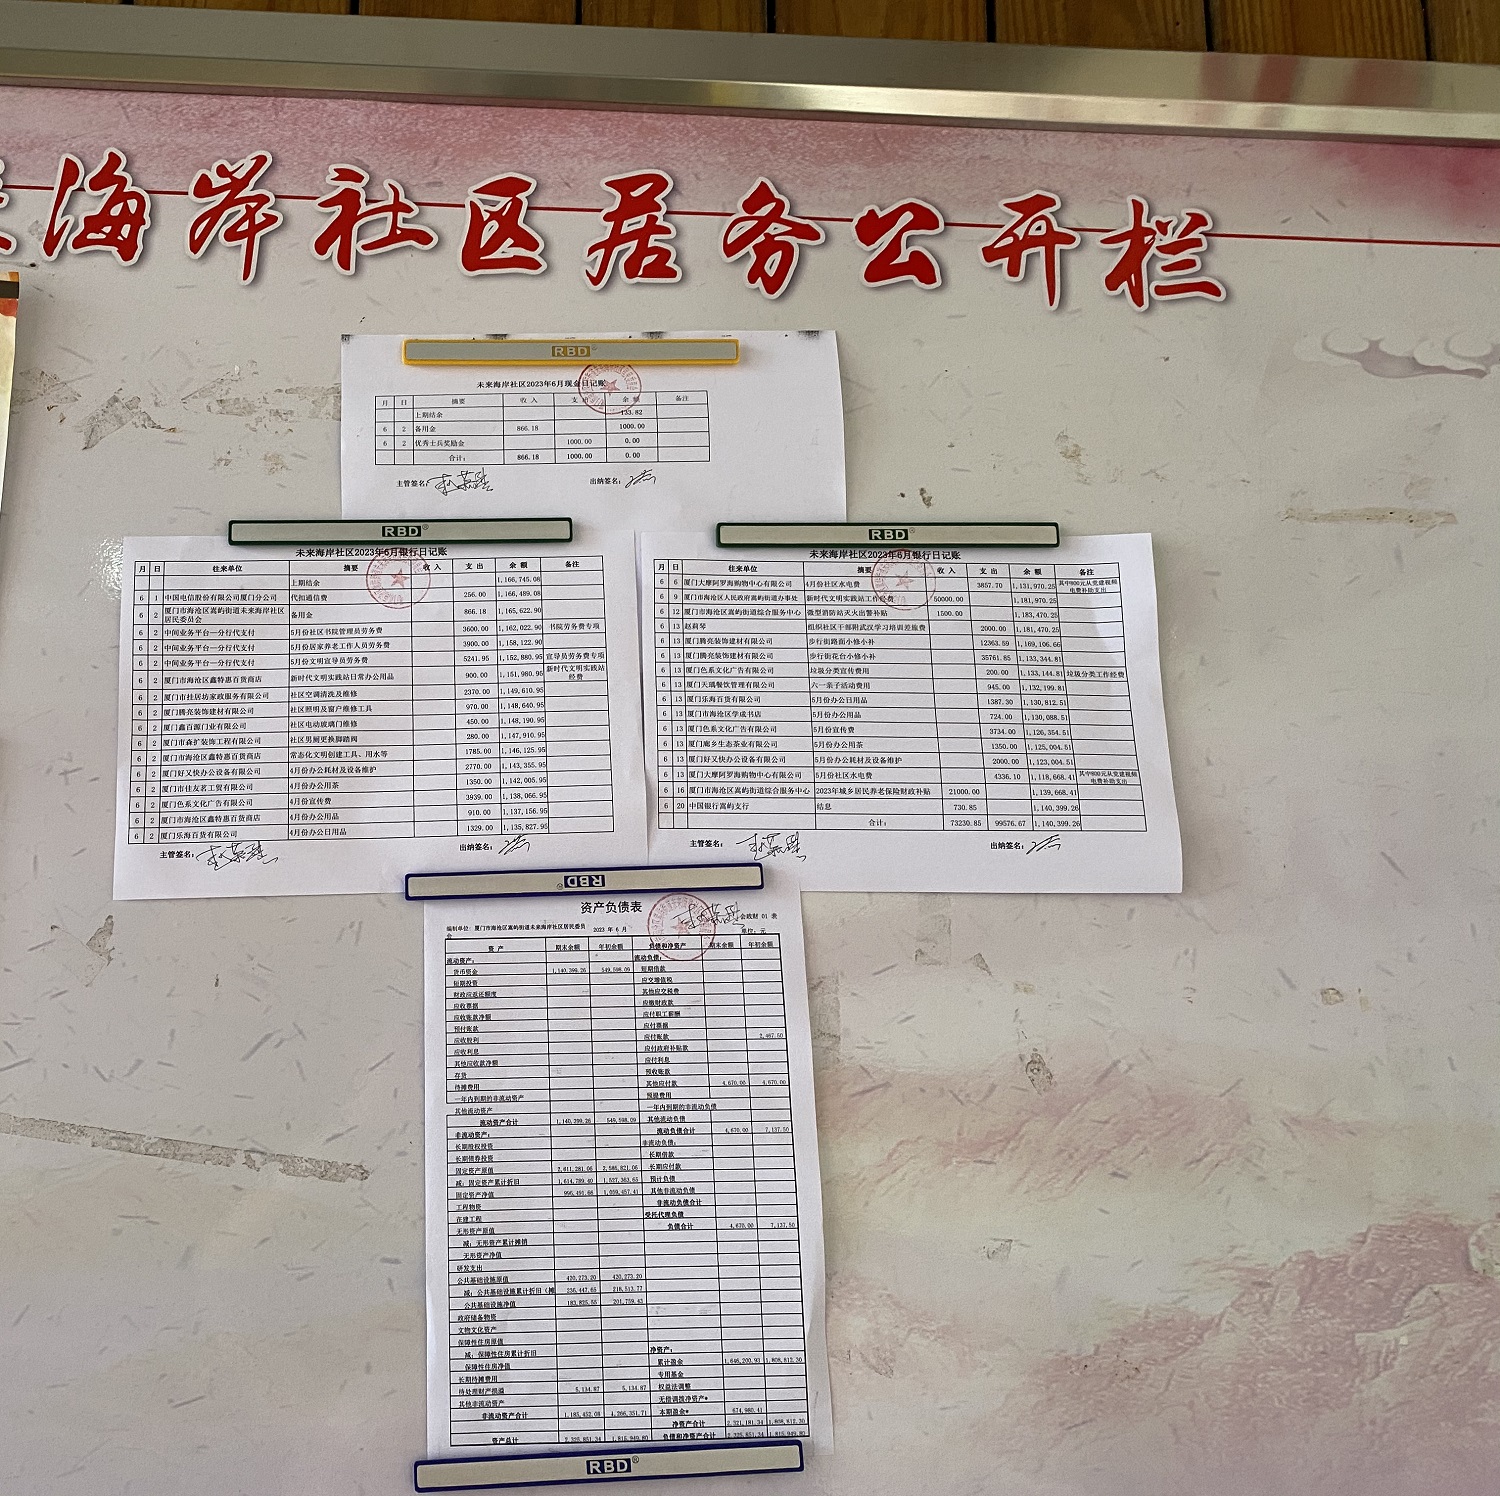 海岸社区居务公开栏
RBD
未来海岸社区2023年6月现金日记账
月 日 摘要 收入 支出 余额 备注
上期结余 133.82
6 2 备用金 866.18 1000.00
6 2 优秀士兵奖励金 1000.00 0.00
合计: 866.18 1000.00 0.00
主管签名: 出纳签名:
RBD
未来海岸社区2023年6月银行日记账
月 日 往来单位 摘要 收入 支出 余额 备注
上期结余 1,166,745.08
6 1 中国电信股份有限公司厦门分公司 代扣通信费 256.00 1,166,489.08
6 2 厦门市海沧区嵩屿街道未来海岸社区居民委员会 备用金 866.18 1,165,622.90
6 2 中间业务平台—分行代支付 5月份社区书院管理员劳务费 3600.00 1,162,022.90 书院劳务费专项
6 2 中间业务平台—分行代支付 5月份居家养老工作人员劳务费 3900.00 1,158,122.90
6 2 中间业务平台—分行代支付 5月份文明宣导员劳务费 5241.95 1,152,880.95 宣导员劳务费专项
6 2 厦门市海沧区鑫特惠百货商店 新时代文明实践站日常办公用品 900.00 1,151,980.95 新时代文明实践站经费
6 2 厦门市挂居坊家政服务有限公司 社区空调清洗及维修 2370.00 1,149,610.95
6 2 厦门腾亮装饰建材有限公司 社区照明及窗户维修工具 970.00 1,148,640.95
6 2 厦门鑫百源门业有限公司 社区电动玻璃门维修 450.00 1,148,190.95
6 2 厦门市森扩装饰工程有限公司 社区男厕更换脚踏阀 280.00 1,147,910.95
6 2 厦门市海沧区鑫特惠百货商店 常态化文明创建工具、用水等 1785.00 1,146,125.95
6 2 厦门好又快办公设备有限公司 4月份办公耗材及设备维护 2770.00 1,143,355.95
6 2 厦门市佳友茗工贸有限公司 4月份办公用茶 1350.00 1,142,005.95
6 2 厦门色系文化广告有限公司 4月份宣传费 3939.00 1,138,066.95
6 2 厦门市海沧区鑫特惠百货商店 4月份办公用品 910.00 1,137,156.95
6 2 厦门乐海百货有限公司 4月份办公日用品 1329.00 1,135,827.95
主管签名: 出纳签名:
RBD
未来海岸社区2023年6月银行日记账
月 日 往来单位 摘要 收入 支出 余额 备注
6 6 厦门大摩阿罗海购物中心有限公司 4月份社区水电费 3857.70 1,131,970.25 其中800元从党建视频电费补助支出
6 9 厦门市海沧区人民政府嵩屿街道办事处 新时代文明实践站工作经费 50000.00 1,181,970.25
6 12 厦门市海沧区嵩屿街道综合服务中心 微型消防站灭火出警补贴 1500.00 1,183,470.25
6 13 赵莉琴 组织社区干部附武汉学习培训差旅费 2000.00 1,181,470.25
6 13 厦门腾亮装饰建材有限公司 步行街路面小修小补 12363.59 1,169,106.66
6 13 厦门腾亮装饰建材有限公司 步行街花台小修小补 35761.85 1,133,344.81
6 13 厦门色系文化广告有限公司 垃圾分类宣传费用 200.00 1,133,144.81 垃圾分类工作经费
6 13 厦门天瑀餐饮管理有限公司 六一亲子活动费用 945.00 1,132,199.81
6 13 厦门乐海百货有限公司 5月份办公日用品 1387.30 1,130,812.51
6 13 厦门市海沧区学成书店 5月份办公用品 724.00 1,130,088.51
6 13 厦门色系文化广告有限公司 5月份宣传费 3734.00 1,126,354.51
6 13 厦门廊乡生态茶业有限公司 5月份办公用茶 1350.00 1,125,004.51
6 13 厦门好又快办公设备有限公司 5月份办公耗材及设备维护 2000.00 1,123,004.51
6 13 厦门大摩阿罗海购物中心有限公司 5月份社区水电费 4336.10 1,118,668.41 其中800元从党建视频电费补助支出
6 16 厦门市海沧区嵩屿街道综合服务中心 2023年城乡居民养老保险财政补贴 21000.00 1,139,668.41
6 20 中国银行嵩屿支行 结息 730.85 1,140,399.26
合计: 73230.85 99576.67 1,140,399.26
主管签名: 出纳签名:
RBD
资产负债表
会政财 01 表
编制单位: 厦门市海沧区嵩屿街道未来海岸社区居民委员会 2023 年 6 月 单位: 元
资产 期末余额 年初余额 负债和净资产 期末余额 年初余额
流动资产: 流动负债:
货币资金 1,140,399.26 549,598.09 短期借款
短期投资 应交增值税
财政应返还额度 其他应交税费
应收票据 应缴财政款
应收账款净额 应付职工薪酬
预付账款 应付票据
应收股利 应付账款 2,467.50
应收利息 应付政府补贴款
其他应收款净额 应付利息
存货 预收账款
待摊费用 其他应付款 4,670.00 4,670.00
一年内到期的非流动资产 预提费用
其他流动资产 一年内到期的非流动负债
流动资产合计 1,140,399.26 549,598.09 其他流动负债
非流动资产: 流动负债合计 4,670.00 7,137.50
长期股权投资 非流动负债:
长期债券投资 长期借款
固定资产原值 2,611,281.06 2,586,821.06 长期应付款
减: 固定资产累计折旧 1,614,789.40 1,527,363.65 预计负债
固定资产净值 996,491.66 1,059,457.41 其他非流动负债
工程物资 非流动负债合计
在建工程 受托代理负债
无形资产原值 负债合计 4,670.00 7,137.50
减: 无形资产累计摊销
无形资产净值
研发支出
公共基础设施原值 420,273.20 420,273.20
减: 公共基础设施累计折旧（摊 236,447.65 218,513.77
公共基础设施净值 183,825.55 201,759.43
政府储备物资
文物文化资产
保障性住房原值
减: 保障性住房累计折旧 净资产:
保障性住房净值 累计盈余 1,646,200.93 1,808,812.30
长期待摊费用 专用基金
待处理财产损溢 5,134.87 5,134.87 权益法调整
其他非流动资产 无偿调拨净资产*
非流动资产合计 1,185,452.08 1,266,351.71 本期盈余* 674,980.41
净资产合计 2,321,181.34 1,808,812.30
资产总计 2,325,851.34 1,815,949.80 负债和净资产合计 2,325,851.34 1,815,949.80
RBD